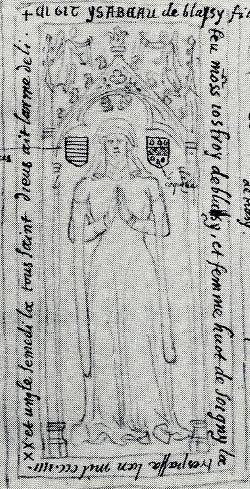 + Ci GIT YSABEAU de blaisy fi
feu mōss iosfroy de blaisy. et femme huot de soigny la
trespassa lan mil ccc. iiii.
xx et ungle semedi la tous saint dieus ait larme de li.
coquille